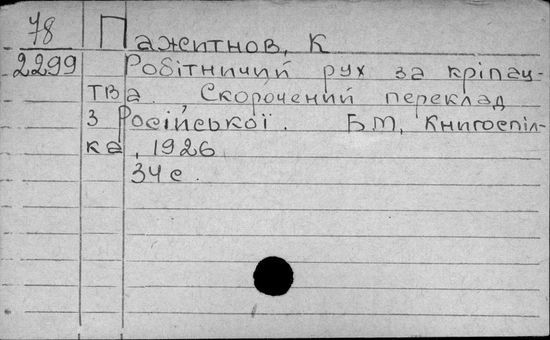 78
Пажитнов, К
2299
Робітничий рух за кріпац-
тва. Скорочений переклад
з Російської. Б.М, Книгоспіл-
ка, 1926
34 с.